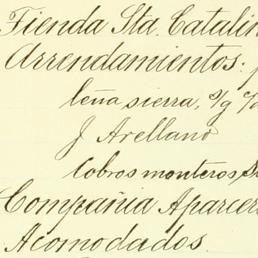 Tienda Sta. Catalin
Arrendamientos:
leña sierra, s/g c/
J Arellano
Cobros monteros S
Compañia Aparcer
Acomodados